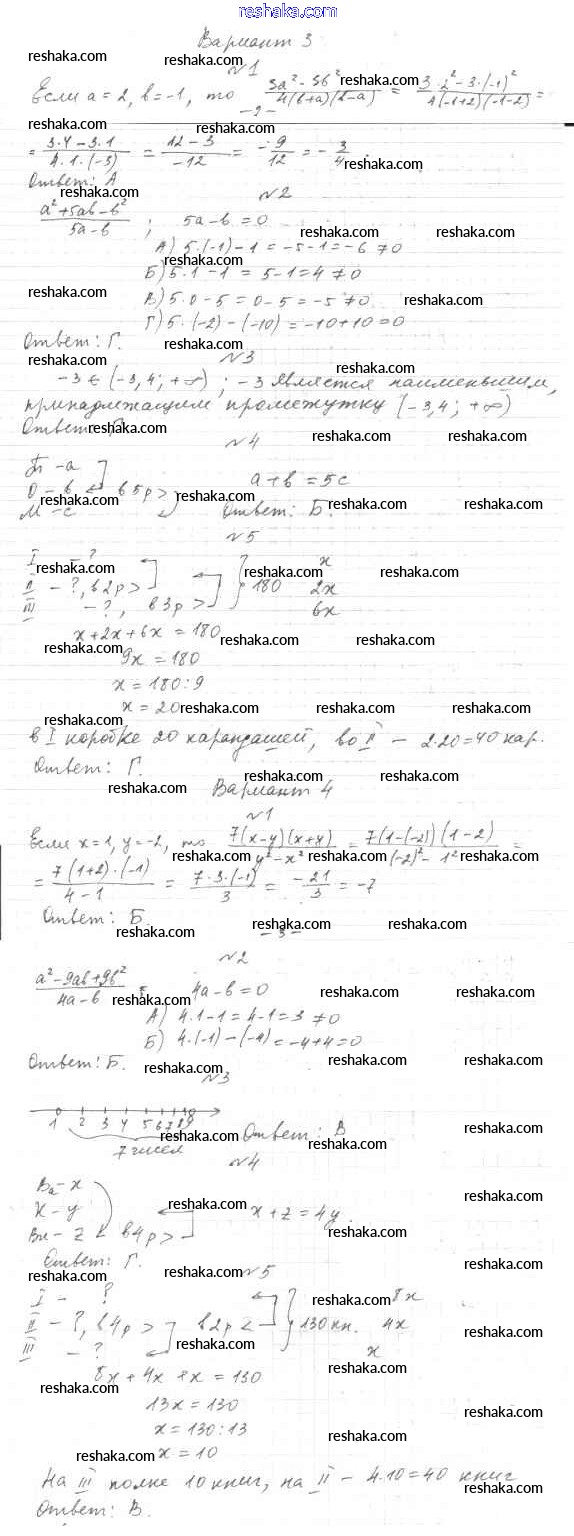 www.reshaka.com
Вариант 3
№1
Если a = 2, b = -1, то (3a² - 3b²)/(4(b+a)(b-a)) = (3·2² - 3·(-1)²)/(4(-1+2)(-1-2)) =
- 2 -
= (3·4 - 3·1)/(4·1·(-3)) = (12 - 3)/(-12) = -9/12 = -3/4.
Ответ: А
№2
(a² + 5ab - b²)/(5a - b) ; 5a - b = 0
А) 5·(-1) - 1 = -5 - 1 = -6 ≠ 0
Б) 5·1 - 1 = 5 - 1 = 4 ≠ 0
В) 5·0 - 5 = 0 - 5 = -5 ≠ 0
Г) 5·(-2) - (-10) = -10 + 10 = 0
Ответ: Г.
№3
-3 ∈ (-3,4; +∞) ; -3 является наименьшим,
принадлежащим промежутку (-3,4; +∞)
Ответ:
№4
П - a
О - b в 5 р > a + b = 5c
М - c Ответ: Б.
№5
I - ? x
II - ?, в 2 р > 180 2x
III - ?, в 3 р > 6x
x + 2x + 6x = 180
9x = 180
x = 180 : 9
x = 20
в I коробке 20 карандашей, во II - 2·20 = 40 кар.
Ответ: Г.
Вариант 4
№1
Если x = 1, y = -2, то 7(x-y)(x+y)/(y² - x²) = 7(1-(-2))(1-2)/((-2)² - 1²) =
= 7(1+2)·(-1)/(4 - 1) = 7·3·(-1)/3 = -21/3 = -7
Ответ: Б.
- 3 -
№2
(a² - 9ab + 9b²)/(4a - b) ; 4a - b = 0
А) 4·1 - 1 = 4 - 1 = 3 ≠ 0
Б) 4·(-1) - (-4) = -4 + 4 = 0
Ответ: Б.
№3
1 2 3 4 5 6 7 8 9
7 чисел Ответ: В
№4
Ва - x
К - y x + z = 4y.
Вл - z в 4 р >
Ответ: Г.
№5
I - ? 8x
II - ?, в 4 р > в 2 р < 130 кн. 4x
III - ? x
8x + 4x + x = 130
13x = 130
x = 130 : 13
x = 10
На III полке 10 книг, на II - 4·10 = 40 книг
Ответ: В.
reshaka.com